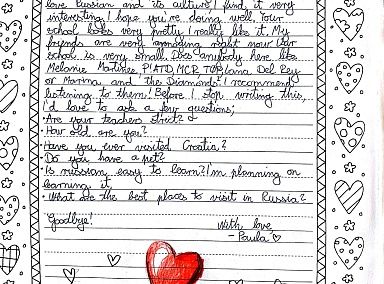 love Russian and its culture! I find it very
interesting. I hope you're doing well. Your
school looks very pretty I really like it. My
friends are very annoying right now. Our
school is very small. Does anybody here like
Melanie Martinez, P!ATD, MCR, TØP, Lana Del Rey
or Marina and the Diamonds? I recommend
listening to them! Before I stop writing this,
I'd love to ask a few questions;
• Are your teachers strict?
• How old are you?
• Have you ever visited Croatia?
• Do you have a pet?
• Is russian easy to learn? I'm planning on
learning it.
• What are the best places to visit in Russia?
Goodbye!
With love,
- Paula